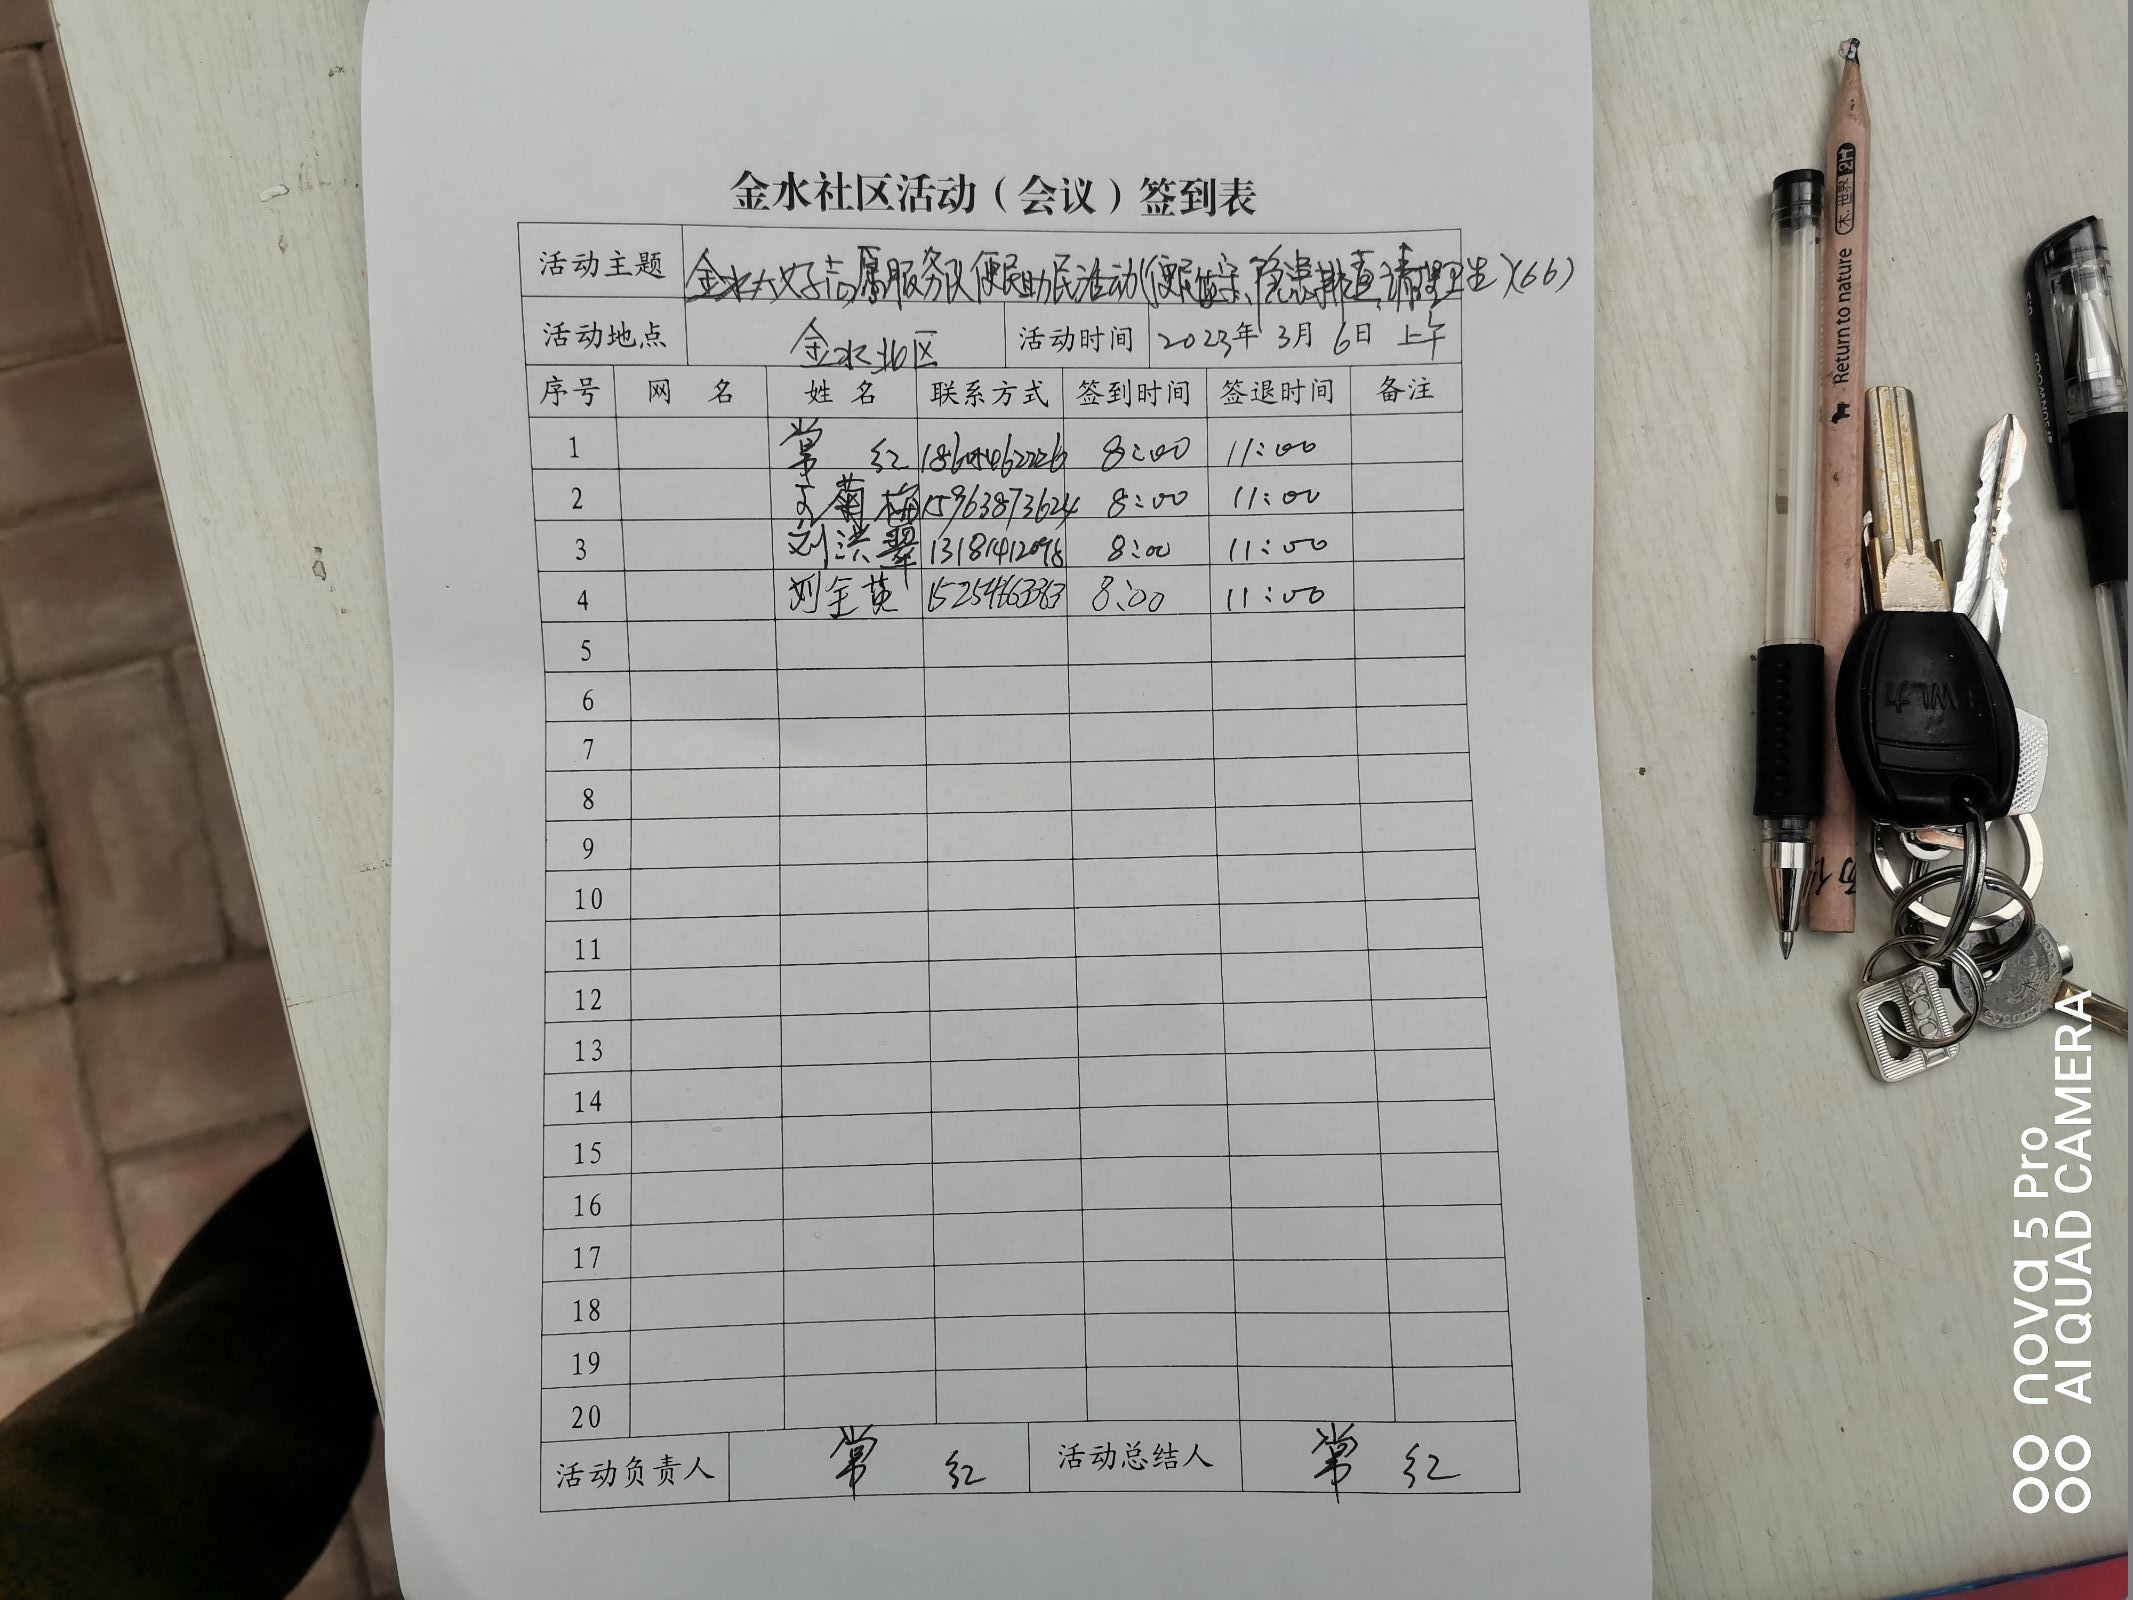 金水社区活动（会议）签到表
活动主题 金水大好志愿服务队便民助民活动(便民值守、隐患排查、清理卫生)(66)
活动地点 金水北区 活动时间 2023年 3月 6日 上午
序号 网 名 姓 名 联系方式 签到时间 签退时间 备注
1 常 红 8:00 11:00
2 王菊梅 15963873624 8:00 11:00
3 刘洪翠 13181412098 8:00 11:00
4 刘金英 15254663383 8:00 11:00
5
6
7
8
9
10
11
12
13
14
15
16
17
18
19
20
活动负责人 常 红 活动总结人 常 红
木.世界 2H
Return to nature
nova 5 Pro
AI QUAD CAMERA